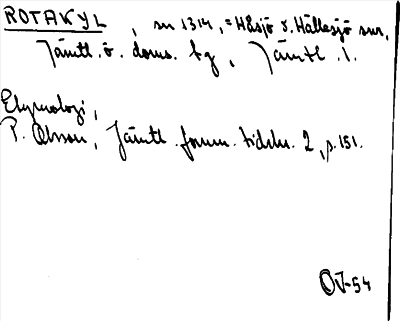 ROTAKYL, sn 1314, = Håsjö o. Hällesjö snr,
Jämtl. ö. doms. tg, Jämtl. l.
Etymologi,
P. Olsson, Jämtl. fornm. tidskr. 2, s. 151.
OV-54